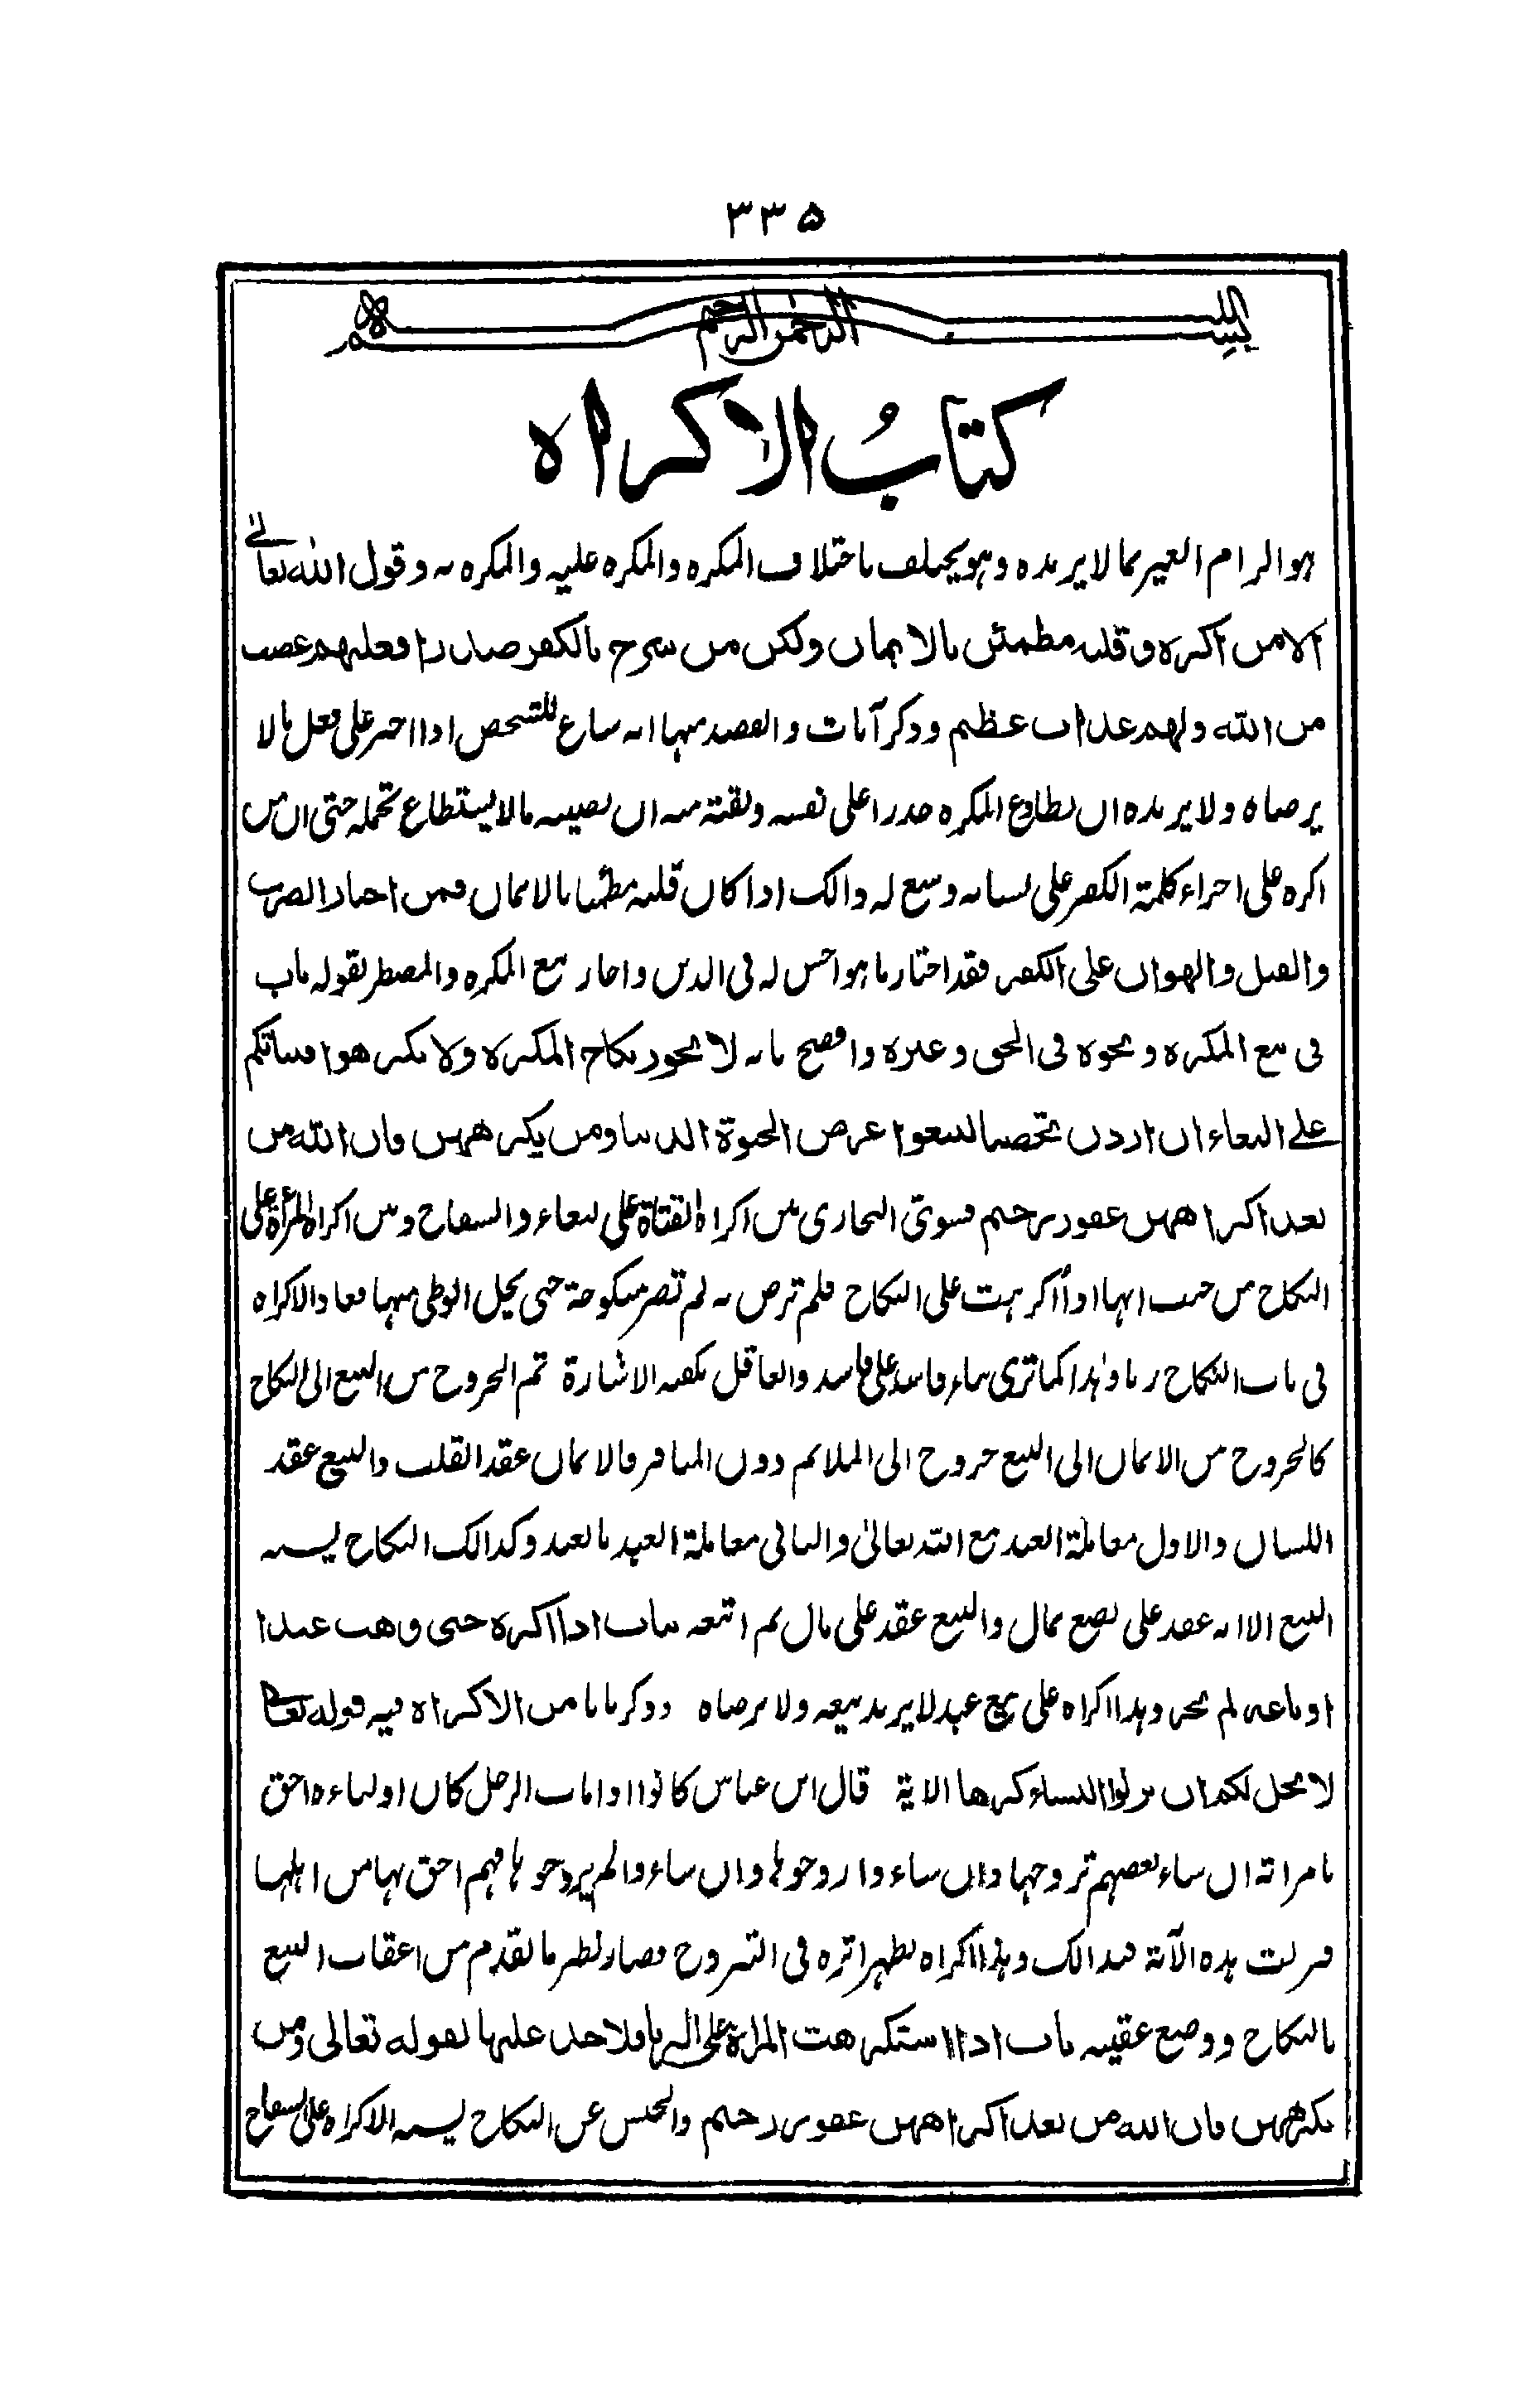 ٣٣٥
بسم الله الرحمن الرحيم
كتابُ الاكراه
هو الزام الغير بما لا يريده وهو يختلف باختلاف المكره والمكره عليه والمكره به وقول الله تعالى
الا من اكره وقلبه مطمئن بالايمان ولكن من شرح بالكفر صدرا فعليهم غضب
من الله ولهم عذاب عظيم وذكر آيات والقصد منها انه ساغ للشخص اذا اجبر على فعل مالا
يرضاه ولا يريده ان يطاوع المكره حذرا على نفسه وثقته منه ان يصيبه مالا يستطاع تحمله حتى ان من
اكره على اجراء كلمة الكفر على لسانه وسع له ذالك اذا كان قلبه مطمئنا بالايمان فمن اختار الضرب
والقتل والهوان على الكفر فقد اختار ما هو احسن له فى الدين واجاز بيع المكره والمضطر بقوله باب
فى بيع المكره ونحوه فى الحق وغيره وافصح بانه لا يجوز نكاح المكره ولا تكرهوا فتياتكم
على البغاء ان اردن تحصنا لتبتغوا عرض الحيوة الدنيا ومن يكرههن فان الله من
بعد اكراههن غفور رحيم فسوى البخارى بين اكراه الفتاة على البغاء والسفاح وبين اكراه المرأة على
النكاح من حيث انها اذا أكرهت على النكاح فلم ترض به لم تصر منكوحة حتى يحل الوطى منها فعاد الاكراه
فى باب النكاح زنا وهذا كما ترى بناء فاسد على فاسد والعاقل تكفيه الاشارة ثم الخروج من البيع الى النكاح
كالخروج من الايمان الى البيع خروج الى الملائم دون المنافر فالايمان عقد القلب والبيع عقد
اللسان والاول معاملة العبد مع الله تعالى والثانى معاملة العبد بالعبد وكذالك النكاح يشبه
البيع الا انه عقد على بضع بمال والبيع عقد على مال ثم اتبعه بباب اذا اكره حتى وهب عبدا
او باعه لم يجز وهذا اكراه على بيع عبد لا يريد بيعه ولا يرضاه وذكر بابا من الاكراه فيه قوله تعالى
لا يحل لكم ان ترثوا النساء كرها الاية قال ابن عباس كانوا اذا مات الرجل كان اولياءه احق
بامراته ان شاء بعضهم تزوجها وان شاءوا زوجوها وان شاءوا لم يزوجوها فهم احق بها من اهلها
فنزلت هذه الآية فى ذالك وهذا اكراه يظهر اثره فى التزوج فصار نظير ما تقدم من اعقاب البيع
بالنكاح ووضع عقيبه باب اذا استكرهت المراة على الزنا فلا حد عليها لقوله تعالى ومن
يكرههن فان الله من بعد اكراههن غفور رحيم والحبس عن النكاح يشبه الاكراه على السفاح